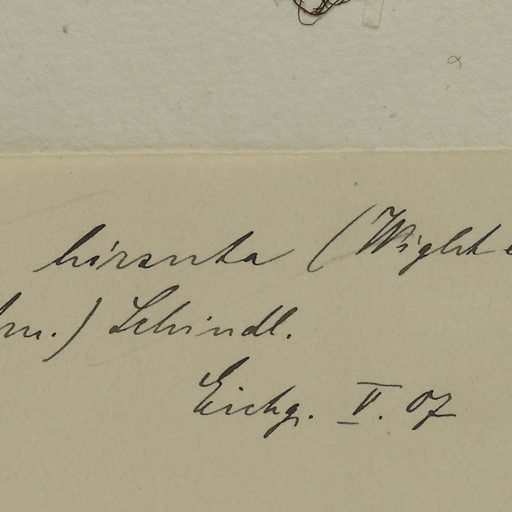 hirsuta (Wight e
rn.) Schindl.
Eichg. V. 07